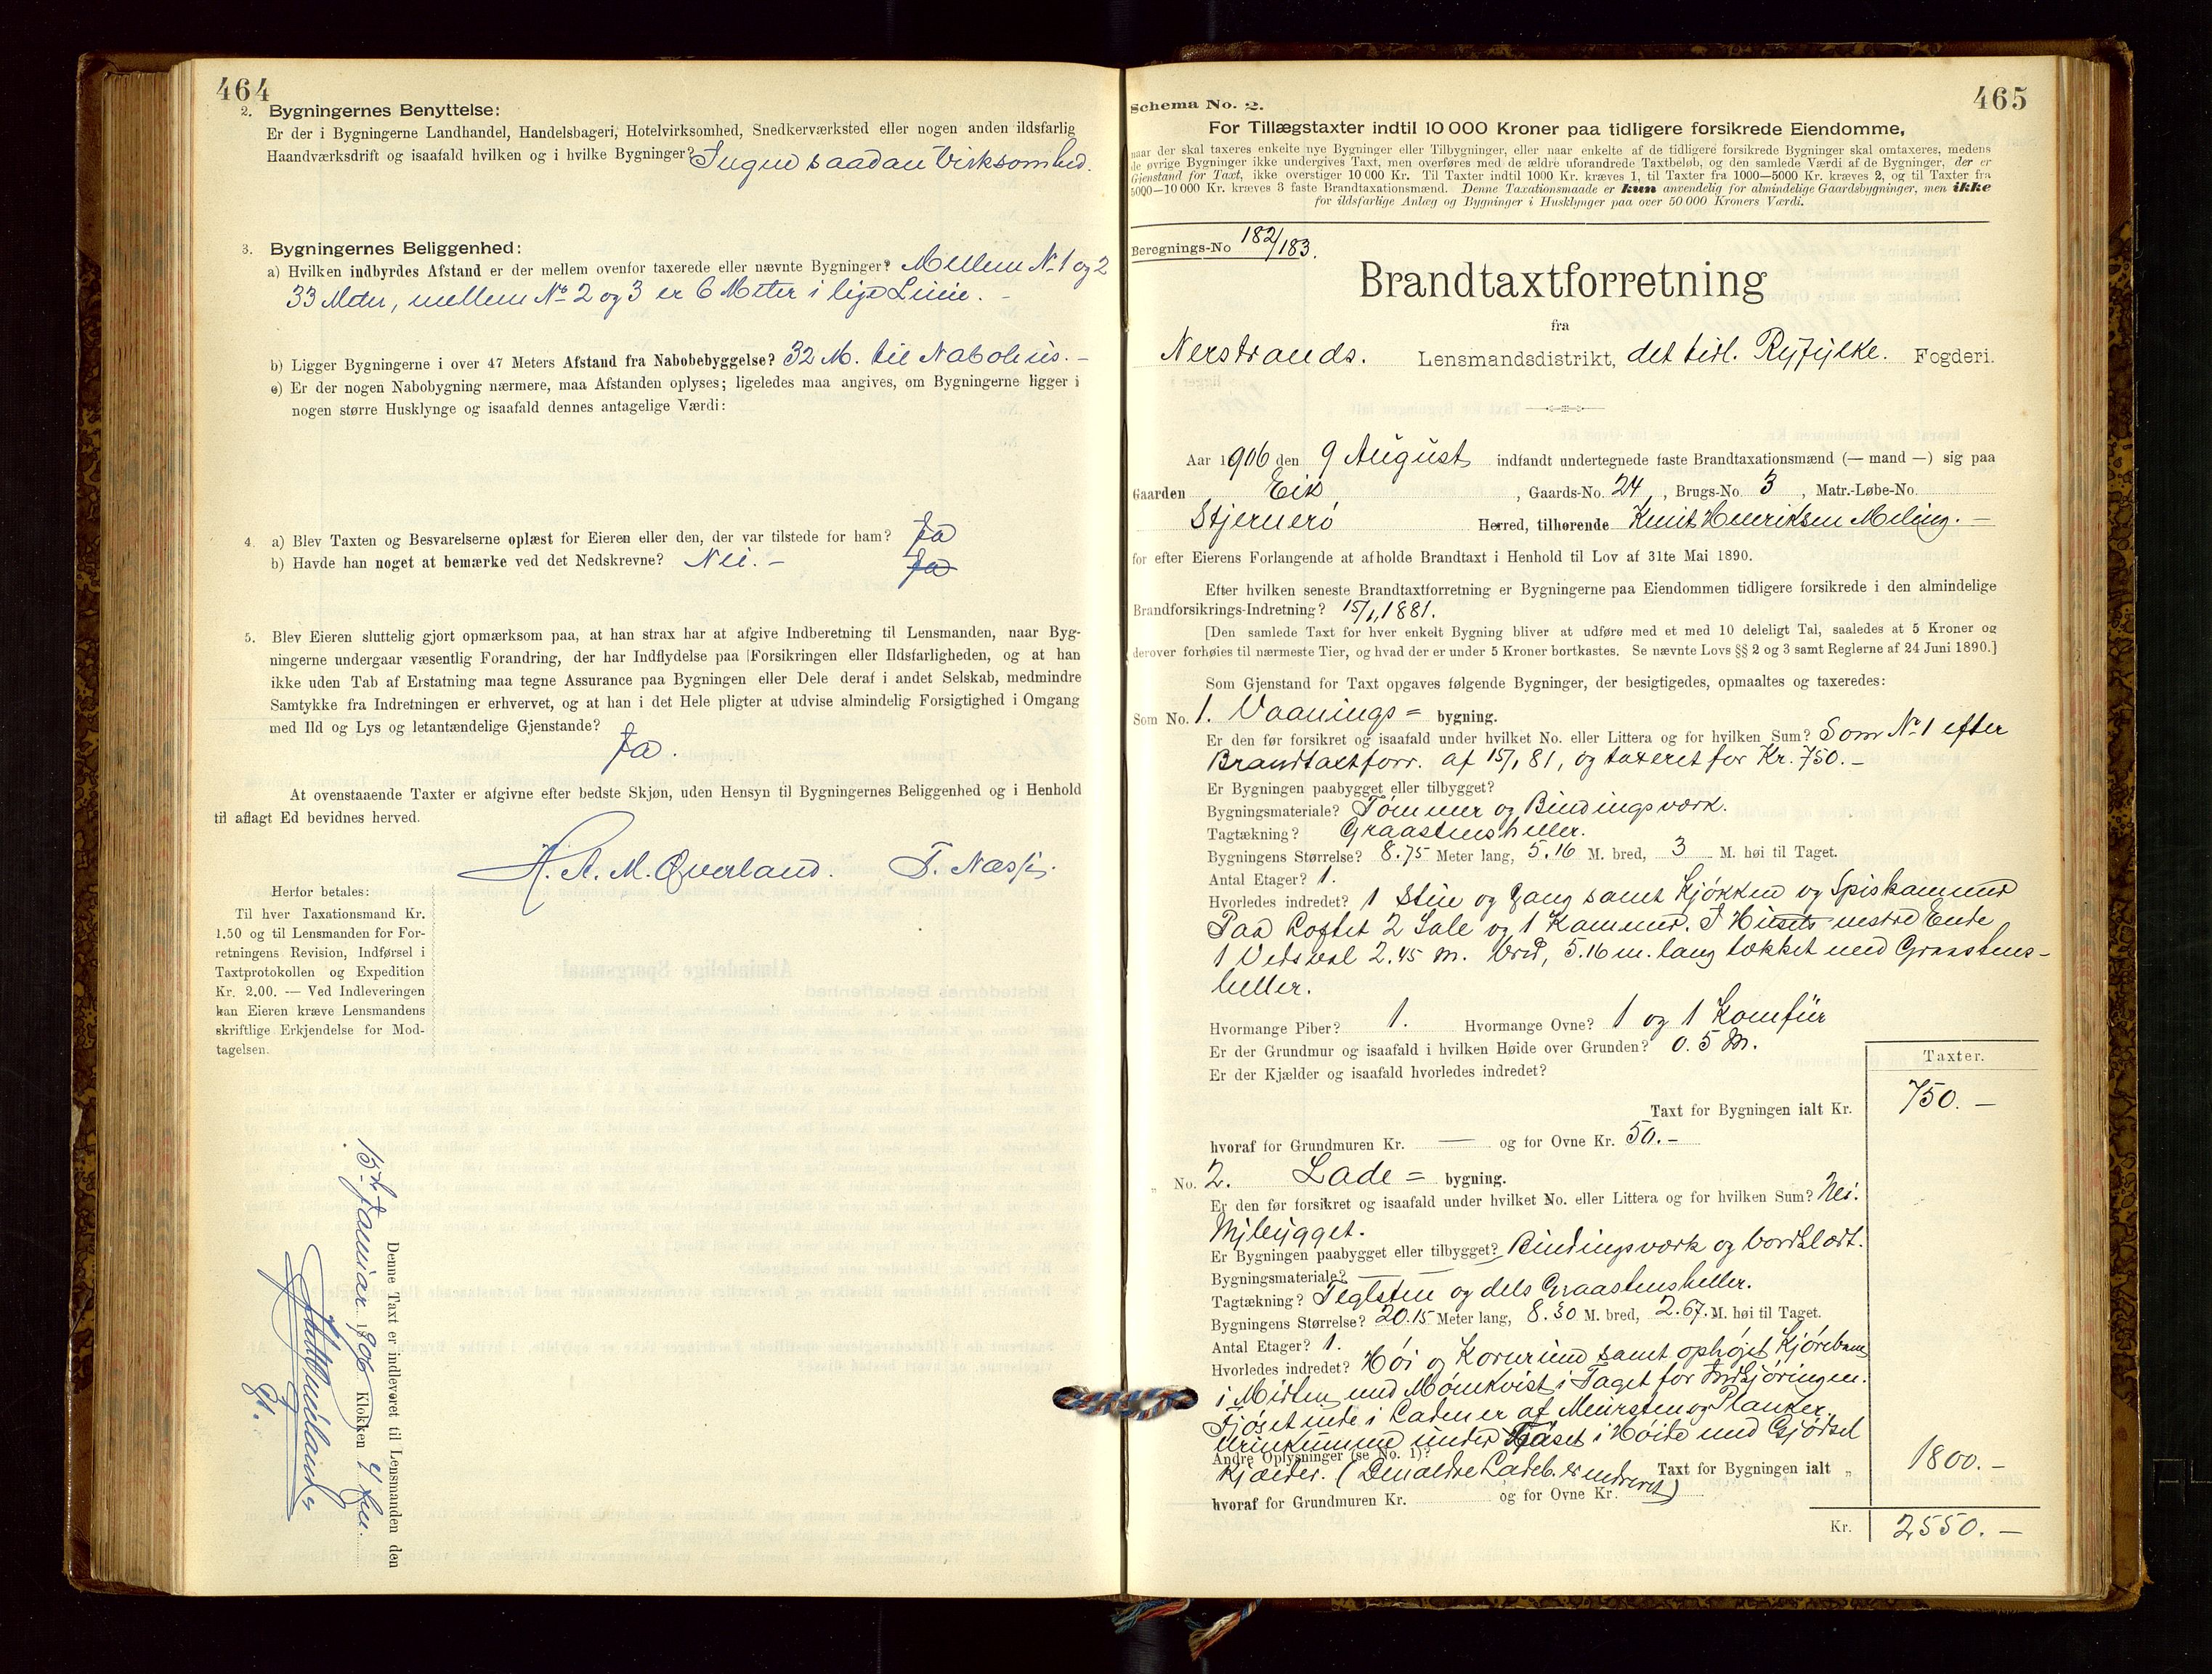 464
2. Bygningernes Benyttelse:
Er der i Bygningerne Landhandel, Handelsbageri, Hotelvirksomhed, Snedkerværksted eller nogen anden ildsfarlig
Haandværksdrift og isaafald hvilken og i hvilke Bygninger? Ingen saadan Virksomhed.
3. Bygningernes Beliggenhed:
a) Hvilken indbyrdes Afstand er der mellem ovenfor taxerede eller nævnte Bygninger? Mellem No 1 og 2
33 Meter, mellem No 2 og 3 er 6 Meter i lige Linie. -
b) Ligger Bygningerne i over 47 Meters Afstand fra Nabobebyggelse? 32 M. til Nabohus. -
c) Er der nogen Nabobygning nærmere, maa Afstanden oplyses; ligeledes maa angives, om Bygningerne ligger i
nogen større Husklynge og isaafald dennes antagelige Værdi:
4. a) Blev Taxten og Besvarelserne oplæst for Eieren eller den, der var tilstede for ham? Ja
b) Havde han noget at bemærke ved det Nedskrevne? Nei. - Ja
5. Blev Eieren sluttelig gjort opmærksom paa, at han strax har at afgive Indberetning til Lensmanden, naar Byg-
ningerne undergaar væsentlig Forandring, der har Indflydelse paa [Forsikringen eller Ildsfarligheden, og at han
ikke uden Tab af Erstatning maa tegne Assurance paa Bygningen eller Dele deraf i andet Selskab, medmindre
Samtykke fra Indretningen er erhvervet, og at han i det Hele pligter at udvise almindelig Forsigtighed i Omgang
med Ild og Lys og letantændelige Gjenstande?
Ja.
At ovenstaaende Taxter er afgivne efter bedste Skjøn, uden Hensyn til Bygningernes Beliggenhed og i Henhold
til aflagt Ed bevidnes herved.
H. A. M. Qverland. T. Næss
Herfor betales:
Til hver Taxationsmand Kr.
1.50 og til Lensmanden for For-
retningens Revision, Indførsel i
Taxtprotokollen og Expedition
Kr. 2.00. — Ved Indleveringen
kan Eieren kræve Lensmandens
skriftlige Erkjendelse for Mod-
tagelsen.
Denne Taxt er indleveret til Lensmanden den
15de Januar 1906 Klokken 4 Em.
465
Schema No. 2.
For Tillægstaxter indtil 10 000 Kroner paa tidligere forsikrede Eiendomme,
naar der skal taxeres enkelte nye Bygninger eller Tilbygninger, eller naar enkelte af de tidligere forsikrede Bygninger skal omtaxeres, medens
de øvrige Bygninger ikke undergives Taxt, men overføres med de ældre uforandrede Taxtbeløb, og den samlede Værdi af de Bygninger, der er
Gjenstand for Taxt, ikke overstiger 10 000 Kr. Til Taxter indtil 1000 Kr. kræves 1, til Taxter fra 1000—5000 Kr. kræves 2, og til Taxter fra
5000—10 000 Kr. kræves 3 faste Brandtaxationsmænd. Denne Taxationsmaade er kun anvendelig for almindelige Gaardsbygninger, men ikke
for ildsfarlige Anlæg og Bygninger i Husklynger paa over 50 000 Kroners Værdi.
Beregnings-No 182/183.
Brandtaxtforretning
fra
Nerstrands. Lensmandsdistrikt, det tidl. Ryfylke. Fogderi.
Aar 1906 den 9 August indfandt undertegnede faste Brandtaxationsmænd (— mand —) sig paa
Gaarden Eik, Gaards-No. 24, Brugs-No. 3, Matr.-Løbe-No.
Stjernerö Herred, tilhørende Knut Henriksen Meling. -
for efter Eierens Forlangende at afholde Brandtaxt i Henhold til Lov af 31te Mai 1890.
Efter hvilken seneste Brandtaxtforretning er Bygningerne paa Eiendommen tidligere forsikrede i den almindelige
Brandforsikrings-Indretning? 15/1, 1881.
[Den samlede Taxt for hver enkelt Bygning bliver at udføre med et med 10 deleligt Tal, saaledes at 5 Kroner og
derover forhøies til nærmeste Tier, og hvad der er under 5 Kroner bortkastes. Se nævnte Lovs §§ 2 og 3 samt Reglerne af 24 Juni 1890.]
Som Gjenstand for Taxt opgaves følgende Bygninger, der besigtigedes, opmaaltes og taxeredes:
Som No. 1. Vaanings= bygning.
Er den før forsikret og isaafald under hvilket No. eller Littera og for hvilken Sum? Som No 1 efter
Brandtaxtforr. af 15/1 81, og taxeret for Kr. 750. -
Er Bygningen paabygget eller tilbygget?
Bygningsmateriale? Tömmer og Bindingsværk.
Tagtækning? Graastensheller.
Bygningens Størrelse? 8.75 Meter lang, 5.16 M. bred, 3 M. høi til Taget.
Antal Etager? 1.
Hvorledes indredet? 1 Stue og Gang samt Kjøkken og Spiskammer
Paa Loftet 2 Sale og 1 Kammer. I Husets vestre Ende
1 Vedsval 2.45 m. bred, 5.16 m. lang tækket med Graastens-
heller.
Hvormange Piber? 1. Hvormange Ovne? 1 og 1 Komfur
Er der Grundmur og isaafald i hvilken Høide over Grunden? 0.5 M.
Er der Kjælder og isaafald hvorledes indredet?
Taxter.
Taxt for Bygningen ialt Kr. 750. -
hvoraf for Grundmuren Kr. — og for Ovne Kr. 50. -
„ No. 2. Lade= bygning.
Er den før forsikret og isaafald under hvilket No. eller Littera og for hvilken Sum? Nei.
Nybygget.
Er Bygningen paabygget eller tilbygget? Bindingsværk og bordklædt.
Bygningsmateriale?
Tagtækning? Teglsten og dels Graastensheller.
Bygningens Størrelse? 20.15 Meter lang, 8.30 M. bred, 2.67. M. høi til Taget.
Antal Etager? 1.
Hvorledes indredet? Höi og Kornrum samt ophöjet Kjörebane
i Midten med Mönekvist i Taget for Indkjöringen.
Fjöset inde i Laden er af Mursten og Planker.
Urinkumme under Fjöset i Höide med Gjödsel
Andre Oplysninger (se No. 1)?
Kjælder. (Den ældre Ladeb. er nedrevet)
Taxt for Bygningen ialt „ 1800. -
hvoraf for Grundmuren Kr. og for Ovne Kr.
Kr. 2550. -